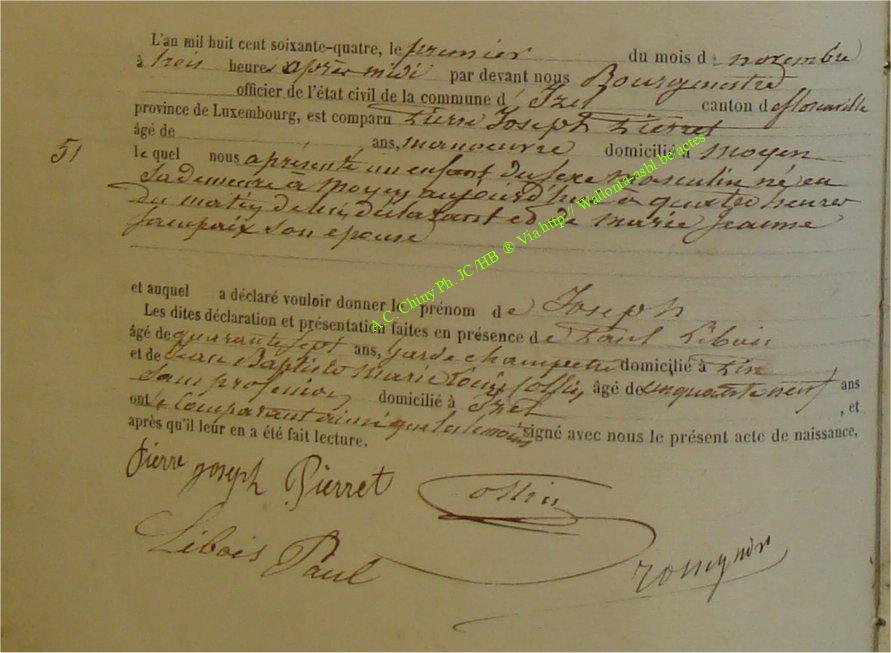 L'an mil huit cent soixante-quatre, le premier du mois d e novembre
à trois heures après midi par devant nous Bourgmestre
officier de l'état civil de la commune d' Izel canton de florenville
province de Luxembourg, est comparu Pierre Joseph Pierret
âgé de ans, manoeuvre domicilié à moyen
51
le quel nous a présenté un enfant du sexe masculin né en
sa demeure à moyen aujourd'hui à quatre heures
du matin de lui déclarant et de marie jeanne
son épouse
et auquel a déclaré vouloir donner le prénom de Joseph
Les dites déclaration et présentation faites en présence de Paul Libois
âgé de quarante sept ans, garde champêtre domicilié à Pin
et de Jean Baptiste marie Louis Collin âgé de cinquante neuf ans
sans profession domicilié à Izel , et
ont le Comparant ainsi que les témoins signé avec nous le présent acte de naissance,
après qu'il leur en a été fait lecture.
Pierre joseph Pierret Collin
Libois Paul rossignon
A.C. Chiny Ph. JC/HB ® Via http:// Wallonia-asbl.be/actes